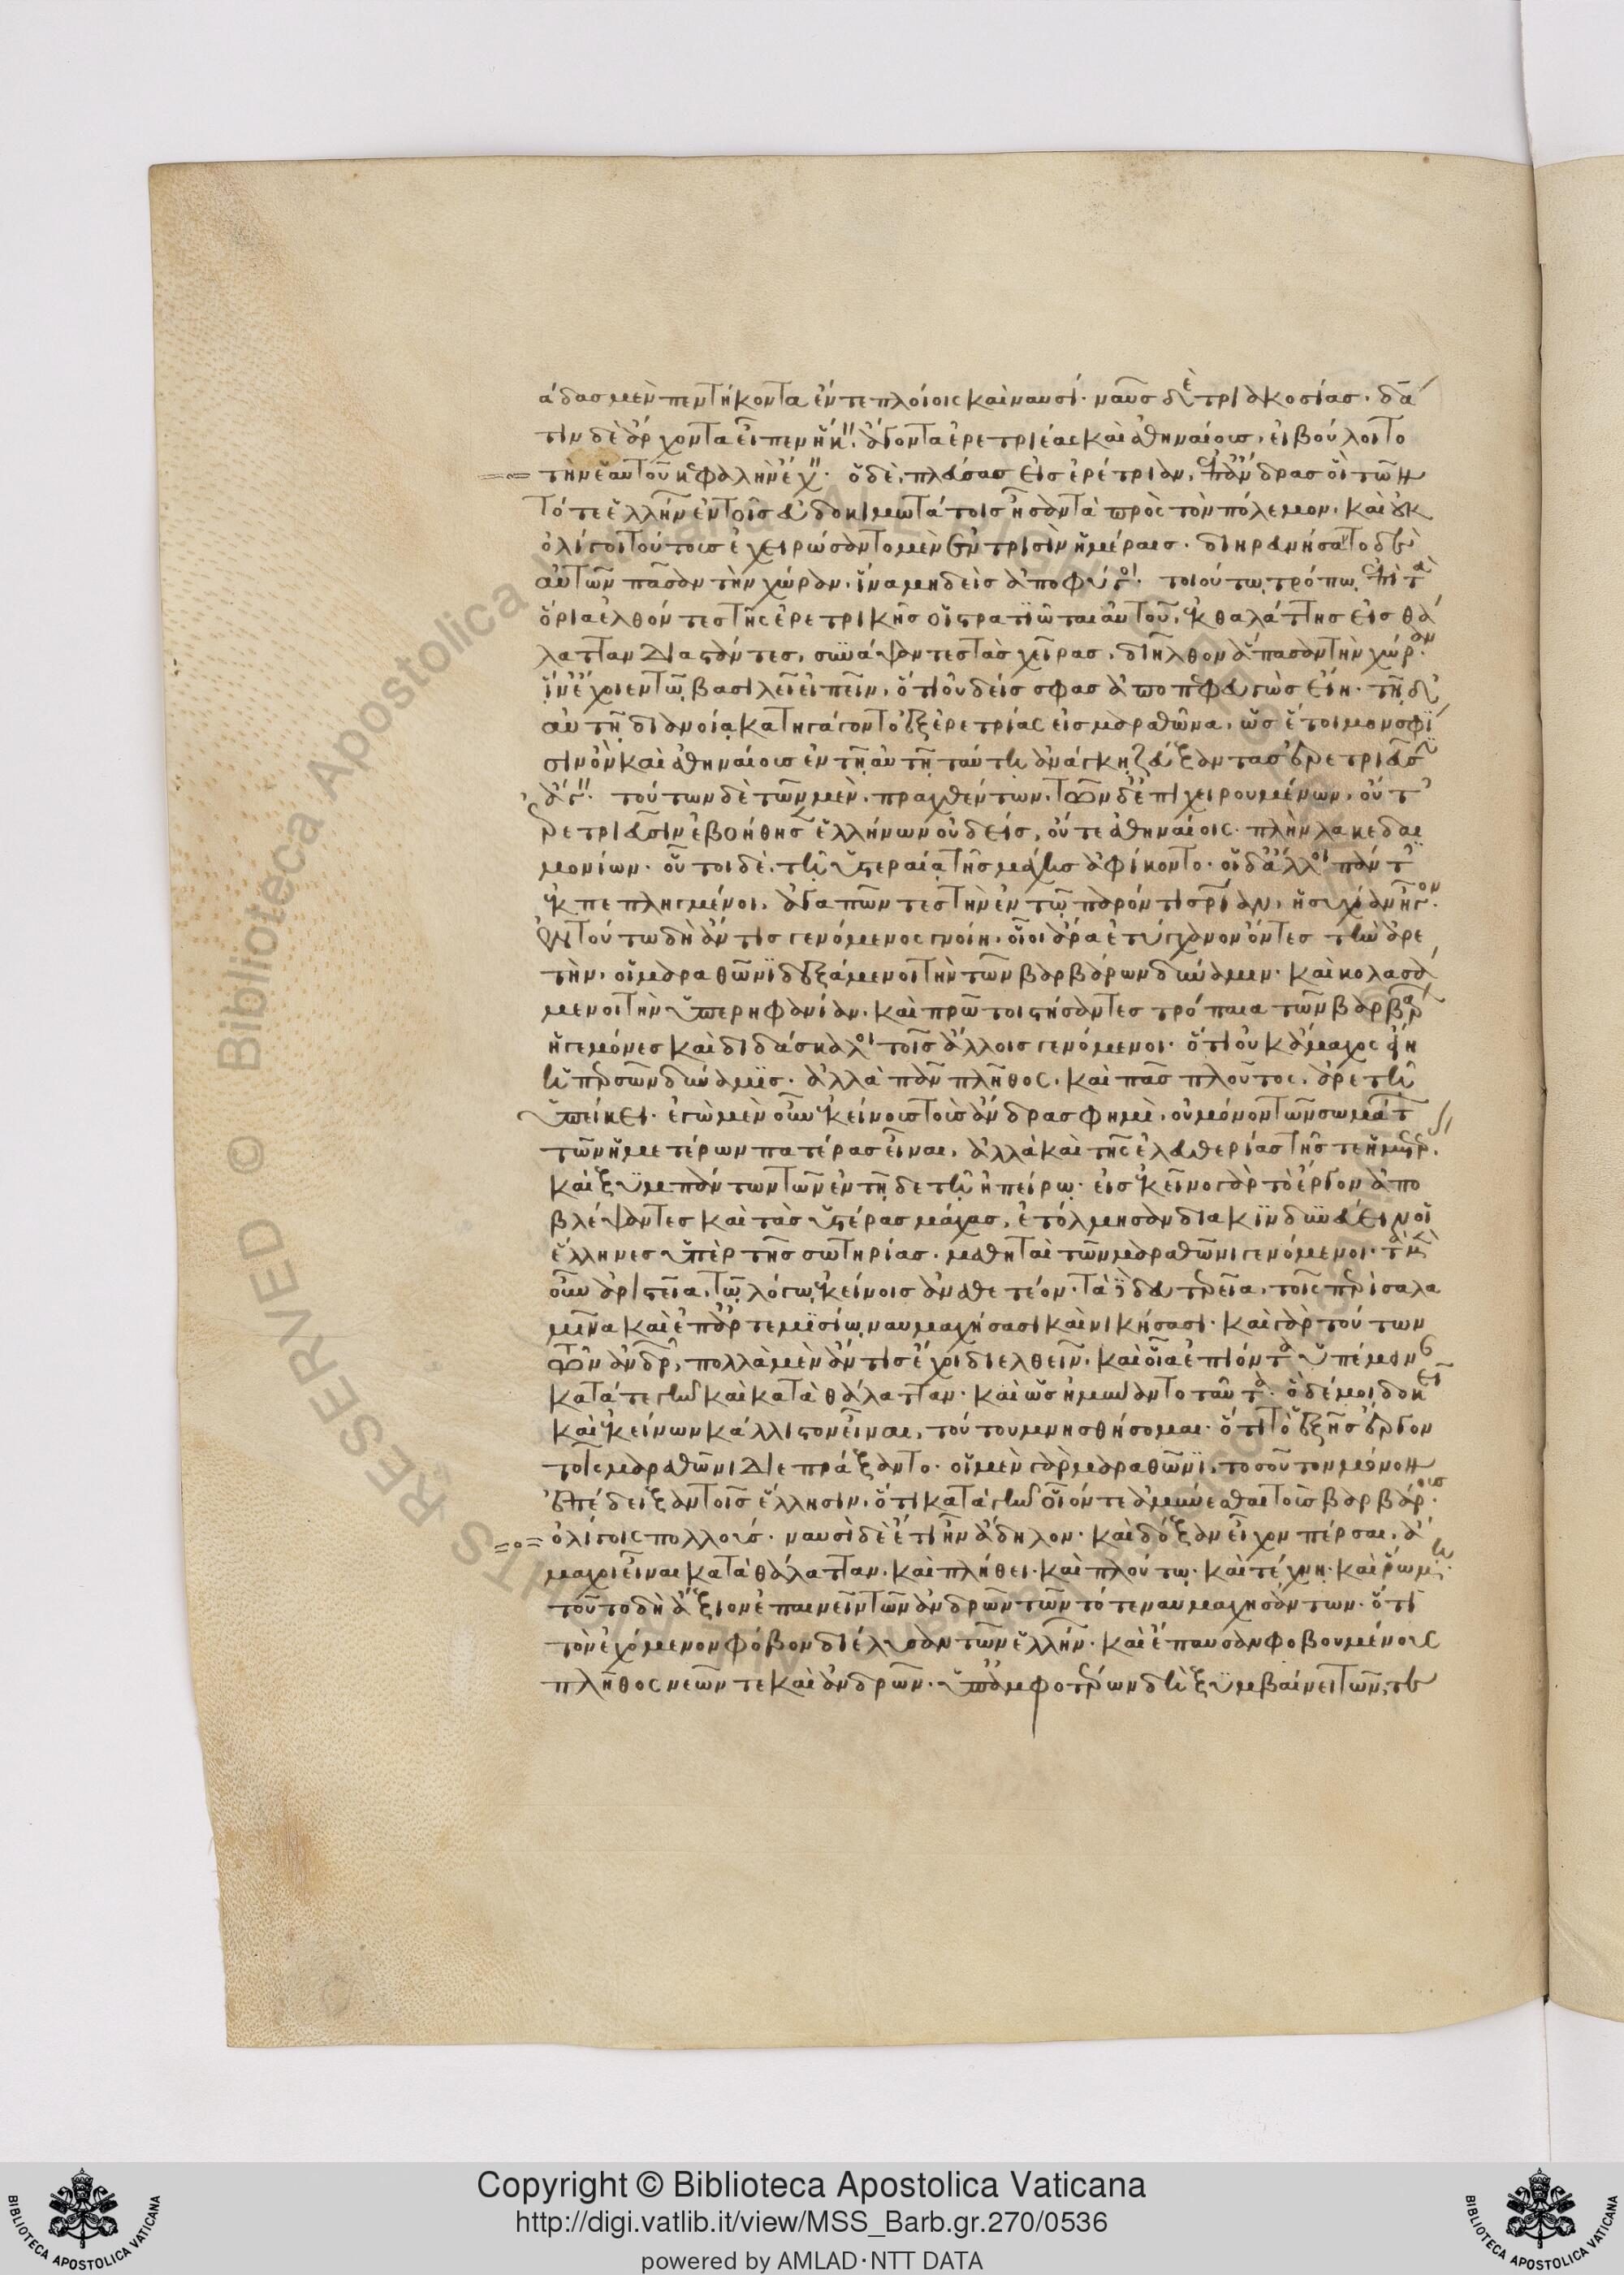 άδας μὲν πεντήκοντα ἔν τε πλοίοις καὶ ναυσί· ναῦς δὲ τριακοσίας· δᾶ
τιν δὲ ἄρχοντα εἶπεν ἥκ· ἄγοντα ἐρετριέας καὶ ἀθηναίους, εἰ βούλοιτο
τὴν ἑαυτοῦ κεφαλὴν ἔχ· ὁ δὲ, πλεύσας εἰς ἐρέτριαν, ἐπ' ἄνδρας οἳ τῶν
τότε ἑλλήν ἐν τοῖς εὐδοκιμωτάτοις ἦσαν τὰ πρὸς τὸν πόλεμον· καὶ οὐκ
ὀλίγοι τούτους ἐχειρώσαντο μὲν ἐν τρισὶν ἡμέραις· διηρευνήσατο δὲ
αὐτῶν πᾶσαν τὴν χώραν· ἵνα μηδεὶς ἀποφύγοι· τοιούτω τρόπω ἐπὶ τὰ
ὅρια ἐλθόντες τῆς ἐρετρικῆς οἱ στρατιῶται αὐτοῦ, ἐκ θαλάττης εἰς θά
λατταν διαστάντες, συνάψαντες τὰς χεῖρας, διῆλθον ἅπασαν τὴν χώραν·
ἵν' ἔχοιεν τῷ βασιλεῖ εἰπεῖν, ὅτι οὐδεὶς σφᾶς ἀποπεφευγὼς εἴη· τῇ δ'
αὐτῇ διανοίᾳ κατηγάγοντο ἐξ ἐρετρίας εἰς μαραθῶνα, ὡς ἕτοιμον σφί
σιν ὂν καὶ ἀθηναίους ἐν τῇ αὐτῇ ταύτη ἀνάγκῃ ζεύξαντας ἐρετριεῦσ
ἄγ· τούτων δὲ τῶν μὲν, πραχθέντων, τῶν δ' ἐπιχειρουμένων, οὔτ'
ἐρετριεῦσιν ἐβοήθησ ἑλλήνων οὐδείς, οὔτε ἀθηναίοις· πλὴν λακεδαι
μονίων· οὗτοι δὲ, τῇ ὑστεραίᾳ τῆς μάχης ἀφίκοντο· οἱ δ' ἄλλοι πάντ
ἐκπεπληγμένοι, ἀγαπῶντες τὴν ἐν τῷ παρόντι σρίαν, ἡσυχίαν ἦγον·
ἐν τούτω δὴ ἄν τις γενόμενος γνοίη, οἷοι ἄρα ἐτύγχανον ὄντες τὴν ἀρε
τὴν, οἱ μαραθῶνι δεξάμενοι τὴν τῶν βαρβάρων δύναμιν· καὶ κολασά
μενοι τὴν ὑπερηφανίαν, καὶ πρῶτοι στήσαντες τρόπαια τῶν βαρβάρ
ἡγεμόνες καὶ διδάσκαλοι τοῖς ἄλλοις γενόμενοι· ὅτι οὐκ ἄμαχος εἴη
ἡ περσῶν δύναμις· ἀλλὰ πᾶν πλῆθος, καὶ πᾶς πλοῦτος, ἀρετῇ
ὑπείκει· ἐγὼ μὲν οὖν ἐκείνους τοὺς ἄνδρας φημὶ, οὐ μόνον τῶν σωμάτ
τῶν ἡμετέρων πατέρας εἶναι, ἀλλὰ καὶ τῆς ἐλευθερίας τῆς τε ἡμετέρ
καὶ ξυμπάντων τῶν ἐν τῇδε τῇ ἠπείρῳ· εἰς ἐκεῖνο γὰρ τὸ ἔργον ἀπο
βλέψαντες καὶ τὰς ὑστέρας μάχας, ἐτόλμησαν διακινδυνεύειν οἱ
ἕλληνες ὑπὲρ τῆς σωτηρίας· μαθηταὶ τῶν μαραθῶνι γενόμενοι· τὰ μὲν
οὖν ἀριστεῖα, τῷ λόγῳ ἐκείνοις ἀναθετέον· τὰ δὲ δευτερεῖα, τοῖς περὶ σαλα
μῖνα καὶ ἐπ' ἀρτεμισίῳ ναυμαχήσασι καὶ νικήσασι· καὶ γὰρ τούτων
τῶν ἀνδρ, πολλὰ μὲν ἄν τις ἔχοι διελθεῖν, καὶ οἷα ἐπιόντα ὑπέμειν
κατά τε γῆν καὶ κατὰ θάλατταν· καὶ ὡς ἠμύναντο ταῦτα· ὃ δέ μοι δοκεῖ
καὶ ἐκείνων κάλλιστον εἶναι, τούτου μνησθήσομαι· ὅτι τὸ ἑξῆς ἔργον
τοῖς μαραθῶνι διεπράξαντο· οἱ μὲν γὰρ μαραθῶνι, τοσοῦτον μόνον
ἐπέδειξαν τοῖς ἕλλησιν, ὅτι κατὰ γῆν οἷόν τε ἀμύνεσθαι τοὺς βαρβάρους
ὀλίγοις πολλούς· ναυσὶ δὲ ἔτι ἦν ἄδηλον· καὶ δόξαν εἶχον πέρσαι, ἄ
μαχοι εἶναι κατὰ θάλατταν, καὶ πλήθει· καὶ πλούτῳ· καὶ τέχνῃ· καὶ ῥώμῃ·
τοῦτο δὴ ἄξιον ἐπαινεῖν τῶν ἀνδρῶν τῶν τότε ναυμαχησάντων· ὅτι
τὸν ἐχόμενον φόβον διέλυσαν τῶν ἑλλήν· καὶ ἔπαυσαν φοβουμένους
πλῆθος νεῶν τε καὶ ἀνδρῶν· ὑπ' ἀμφοτέρων δὴ ξυμβαίνει τῶν τε
Copyright © Biblioteca Apostolica Vaticana
http://digi.vatlib.it/view/MSS_Barb.gr.270/0536
powered by AMLAD·NTT DATA